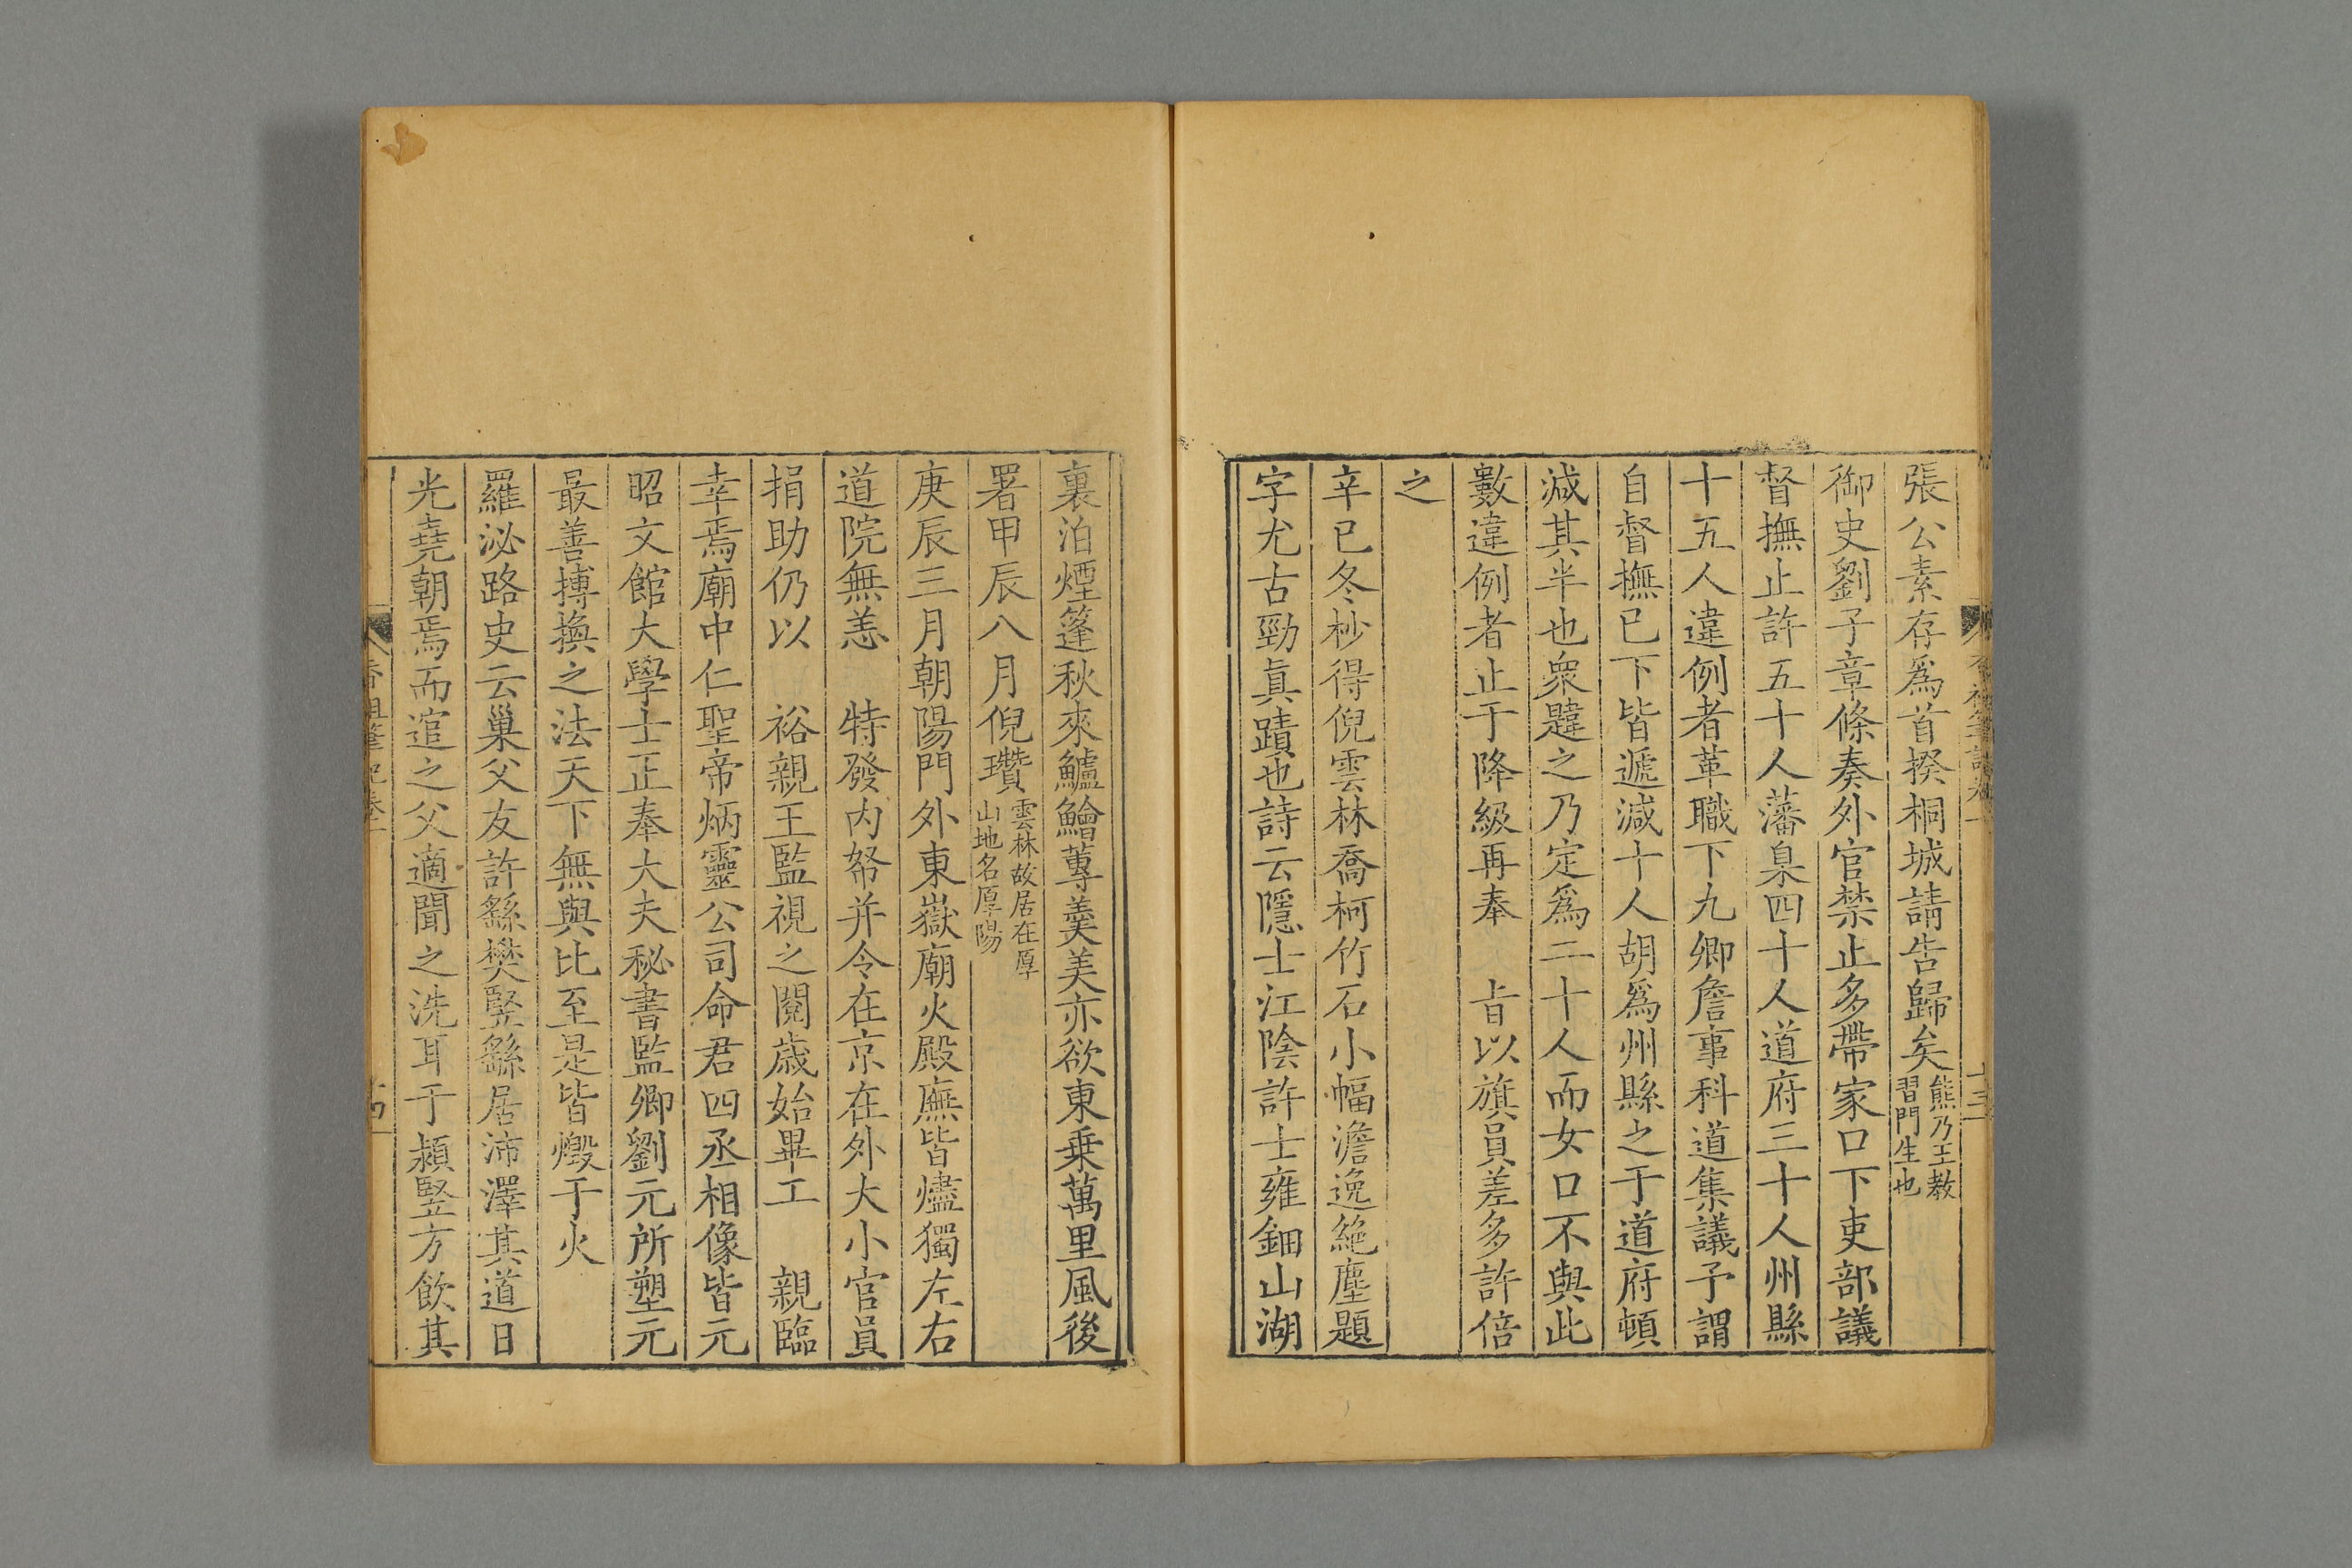 張公素存爲首揆桐城請告歸矣熊乃王教習門生也
御史劉子章條奏外官禁止多帶家口下吏部議
督撫止許五十人藩臬四十人道府三十人州縣
十五人違例者革職下九卿詹事科道集議予謂
自督撫已下皆遞減十人胡爲州縣之于道府頓
減其半也衆韙之乃定爲二十人而女口不與此
數違例者止于降級再奉 旨以旗員差多許倍
之
辛巳冬杪得倪雲林喬柯竹石小幅澹逸絶塵題
字尤古勁眞蹟也詩云隱士江陰許士雍鈿山湖
裏泊煙篷秋來鱸鱠蓴羹美亦欲東乗萬里風後
署甲辰八月倪瓚雲林故居在厚山地名厚陽
庚辰三月朝陽門外東嶽廟火殿廡皆燼獨左右
道院無恙 特發内帑并令在京在外大小官員
捐助仍以 裕親王監視之閲歳始畢工 親臨
幸焉廟中仁聖帝炳靈公司命君四丞相像皆元
昭文館大學士正奉大夫秘書監卿劉元所塑元
最善摶換之法天下無與比至是皆燬于火
羅泌路史云巢父友許繇樊竪繇居沛澤其道日
光堯朝焉而逭之父適聞之洗耳于潁竪方飲其
香祖筆記卷一